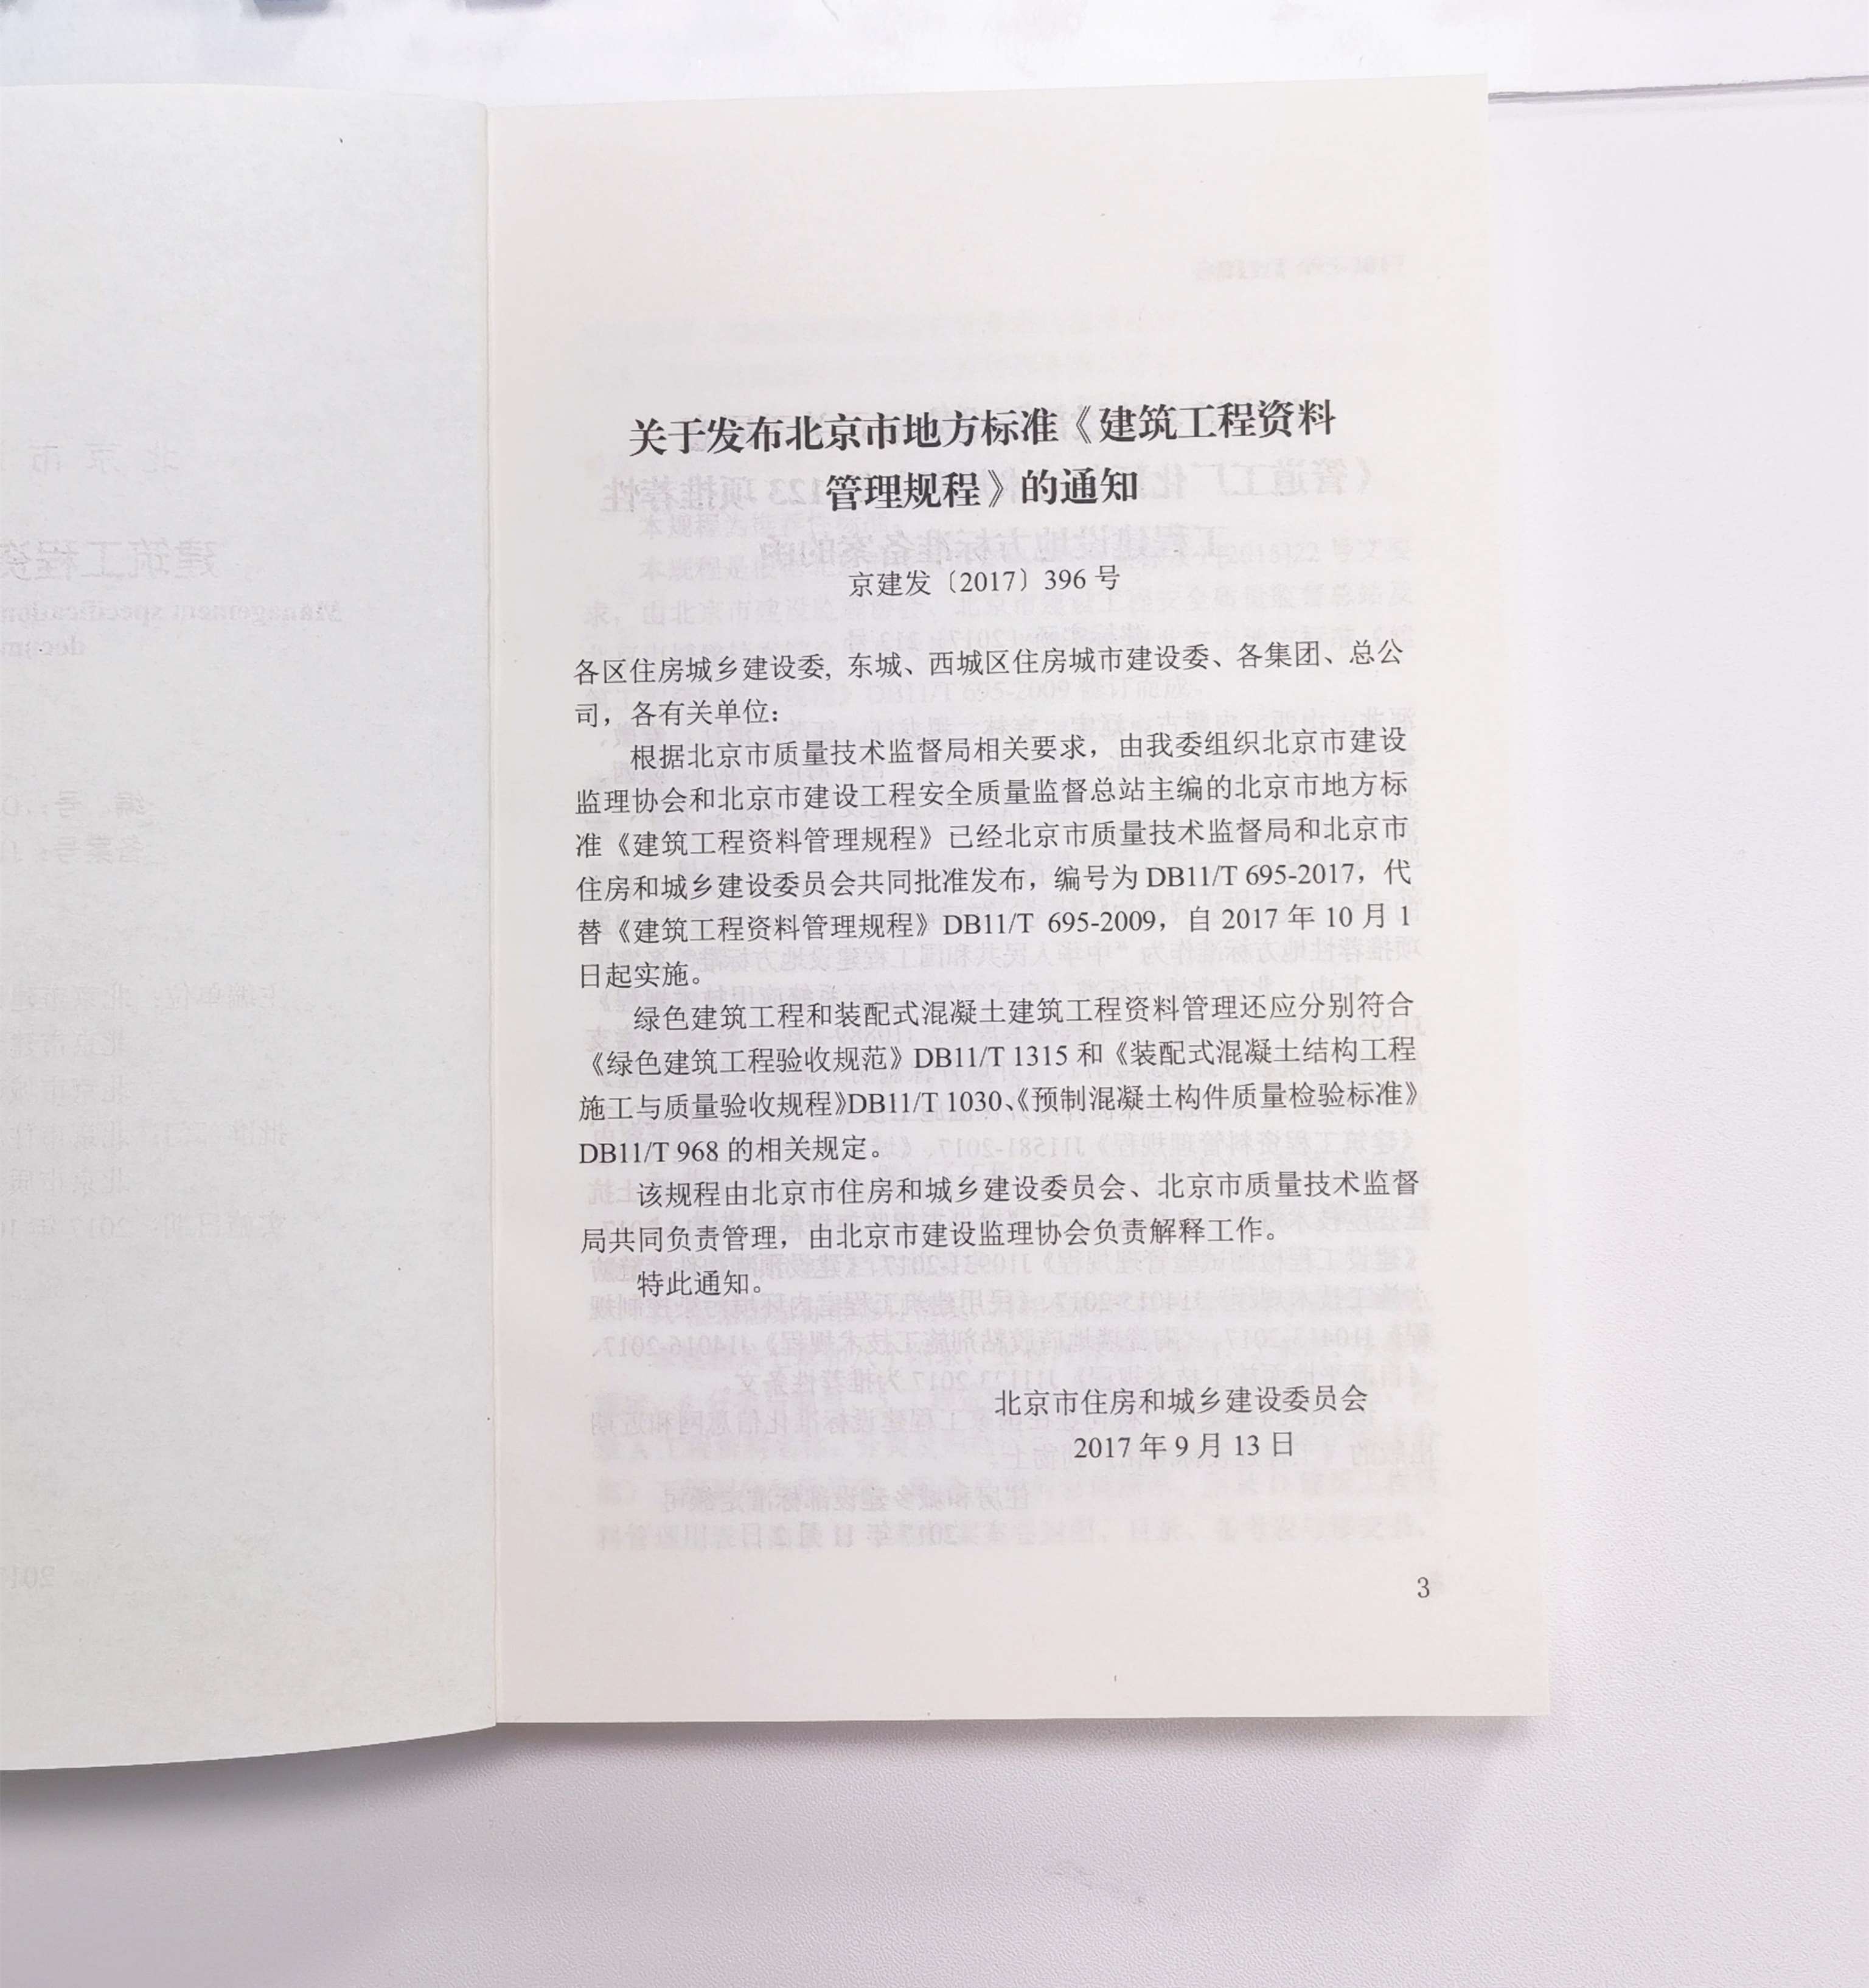 关于发布北京市地方标准《建筑工程资料
管理规程》的通知
京建发〔2017〕396 号
各区住房城乡建设委, 东城、西城区住房城市建设委、各集团、总公
司，各有关单位：
根据北京市质量技术监督局相关要求，由我委组织北京市建设
监理协会和北京市建设工程安全质量监督总站主编的北京市地方标
准《建筑工程资料管理规程》已经北京市质量技术监督局和北京市
住房和城乡建设委员会共同批准发布，编号为 DB11/T 695-2017，代
替《建筑工程资料管理规程》DB11/T 695-2009，自 2017 年 10 月 1
日起实施。
绿色建筑工程和装配式混凝土建筑工程资料管理还应分别符合
《绿色建筑工程验收规范》DB11/T 1315 和《装配式混凝土结构工程
施工与质量验收规程》DB11/T 1030、《预制混凝土构件质量检验标准》
DB11/T 968 的相关规定。
该规程由北京市住房和城乡建设委员会、北京市质量技术监督
局共同负责管理，由北京市建设监理协会负责解释工作。
特此通知。
北京市住房和城乡建设委员会
2017 年 9 月 13 日
3